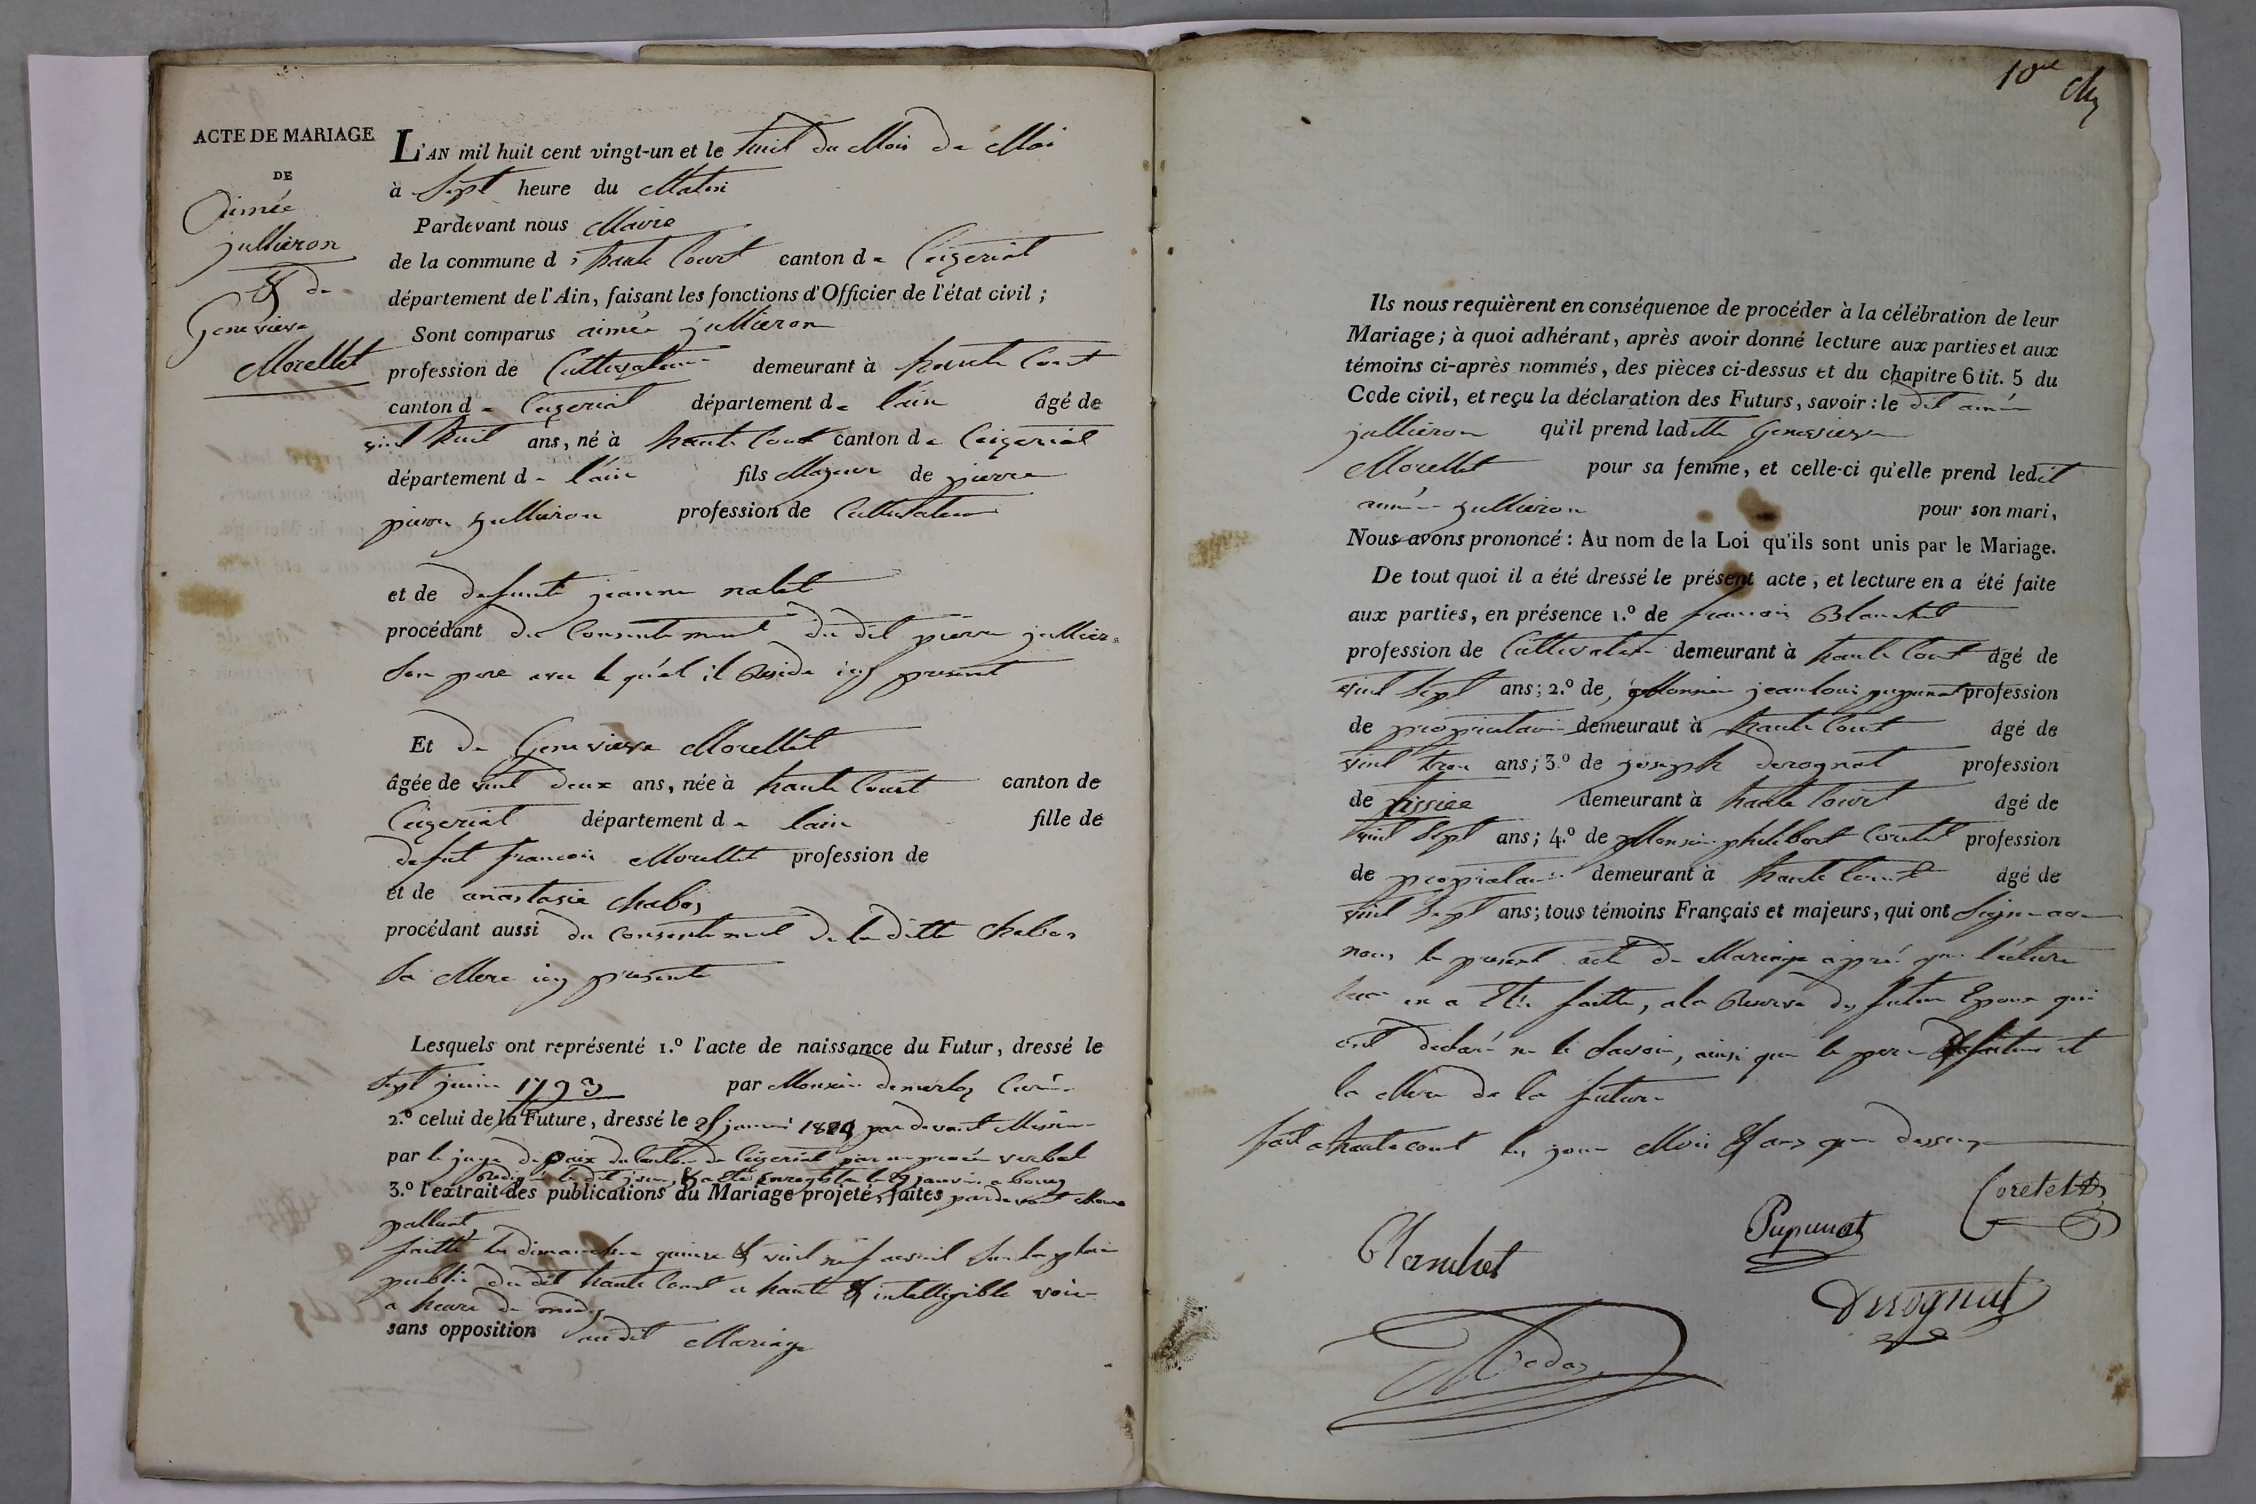 ACTE DE MARIAGE
DE
Aimée
jullieron
& de
Genevieve
Morellet
L'AN mil huit cent vingt-un et le huit du Mois de Mai
à Sept heure du Matin
Pardevant nous Maire
de la commune d haute Court canton de Ceizeriat
département de l'Ain, faisant les fonctions d'Officier de l'état civil ;
Sont comparus aimée jullieron
profession de Cultivateur demeurant à haute Court
canton de Ceizeriat département de l'ain âgé de
vint huit ans, né à haute Court canton de Ceizeriat
département de l'ain fils Majeur de pierre
pierre jullieron profession de Cultivateur
et de defunte jeanne
procédant du Consentement du dit pierre jullier
Son pere avec le quel il Reside icy present
Et de Genevieve Morellet
âgée de vint deux ans, née à haute Court canton de
Ceizeriat département de lain fille de
defut francois Morellet profession de
et de anastasie Chabos
procédant aussi du Consentement de la ditte Chabos
Sa Mere icy presente
Lesquels ont représenté 1.º l'acte de naissance du Futur, dressé le
Sept juin 1793 par Monsieur Curé
2.º celui de la Future, dressé le janvié par devant
par le juge de paix du Canton de Ceizeriat par un procés verbal
janvier a bourg
3.º l'extrait des publications du Mariage projeté, faites pardevant
faitte les dimanche quinze & vint neuf avril Sur la place
public du dit haute Court a haute & intelligible voie
a heure de midy
sans opposition au dit Mariage
10me
Ils nous requièrent en conséquence de procéder à la célébration de leur
Mariage ; à quoi adhérant, après avoir donné lecture aux parties et aux
témoins ci-après nommés, des pièces ci-dessus et du chapitre 6 tit. 5 du
Code civil, et reçu la déclaration des Futurs, savoir : le dit aimée
jullieron qu'il prend laditte Genevieve
Morellet pour sa femme, et celle-ci qu'elle prend ledit
aimée jullieron pour son mari,
Nous avons prononcé : Au nom de la Loi qu'ils sont unis par le Mariage.
De tout quoi il a été dressé le présent acte, et lecture en a été faite
aux parties, en présence 1.º de francois Blanchet
profession de Cultivateur demeurant à haute Court âgé de
vint Sept ans ; 2.º de Monsieur jean loui pupunat profession
de proprietaire demeuraut à haute Court âgé de
vint trois ans ; 3.º de joseph derognat profession
de tissier demeurant à haute Court âgé de
vint Sept ans ; 4.º de Monsieur philibert Coretet profession
de propietaire demeurant à haute Court âgé de
vint Sept ans ; tous témoins Français et majeurs, qui ont Signe avec
nous le present acte de Mariage aprés que l'écture
leur en a Été faitte, a la Reserve des futur Epoux qui
ont declaré ne le Savoir, ainsi que le pere futur et
la Mere de la future
fait a haute court les jour Mois & an que dessus
Coretet
Pupunat
Blanchet
Derognat